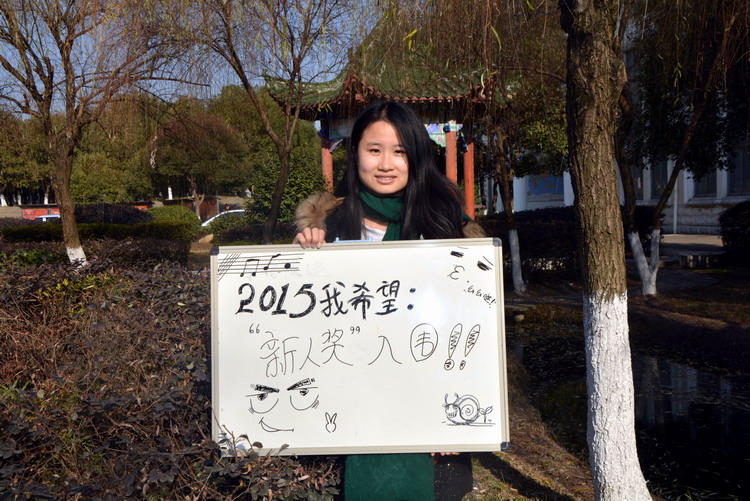 2015我希望：
“新人奖”入围!!